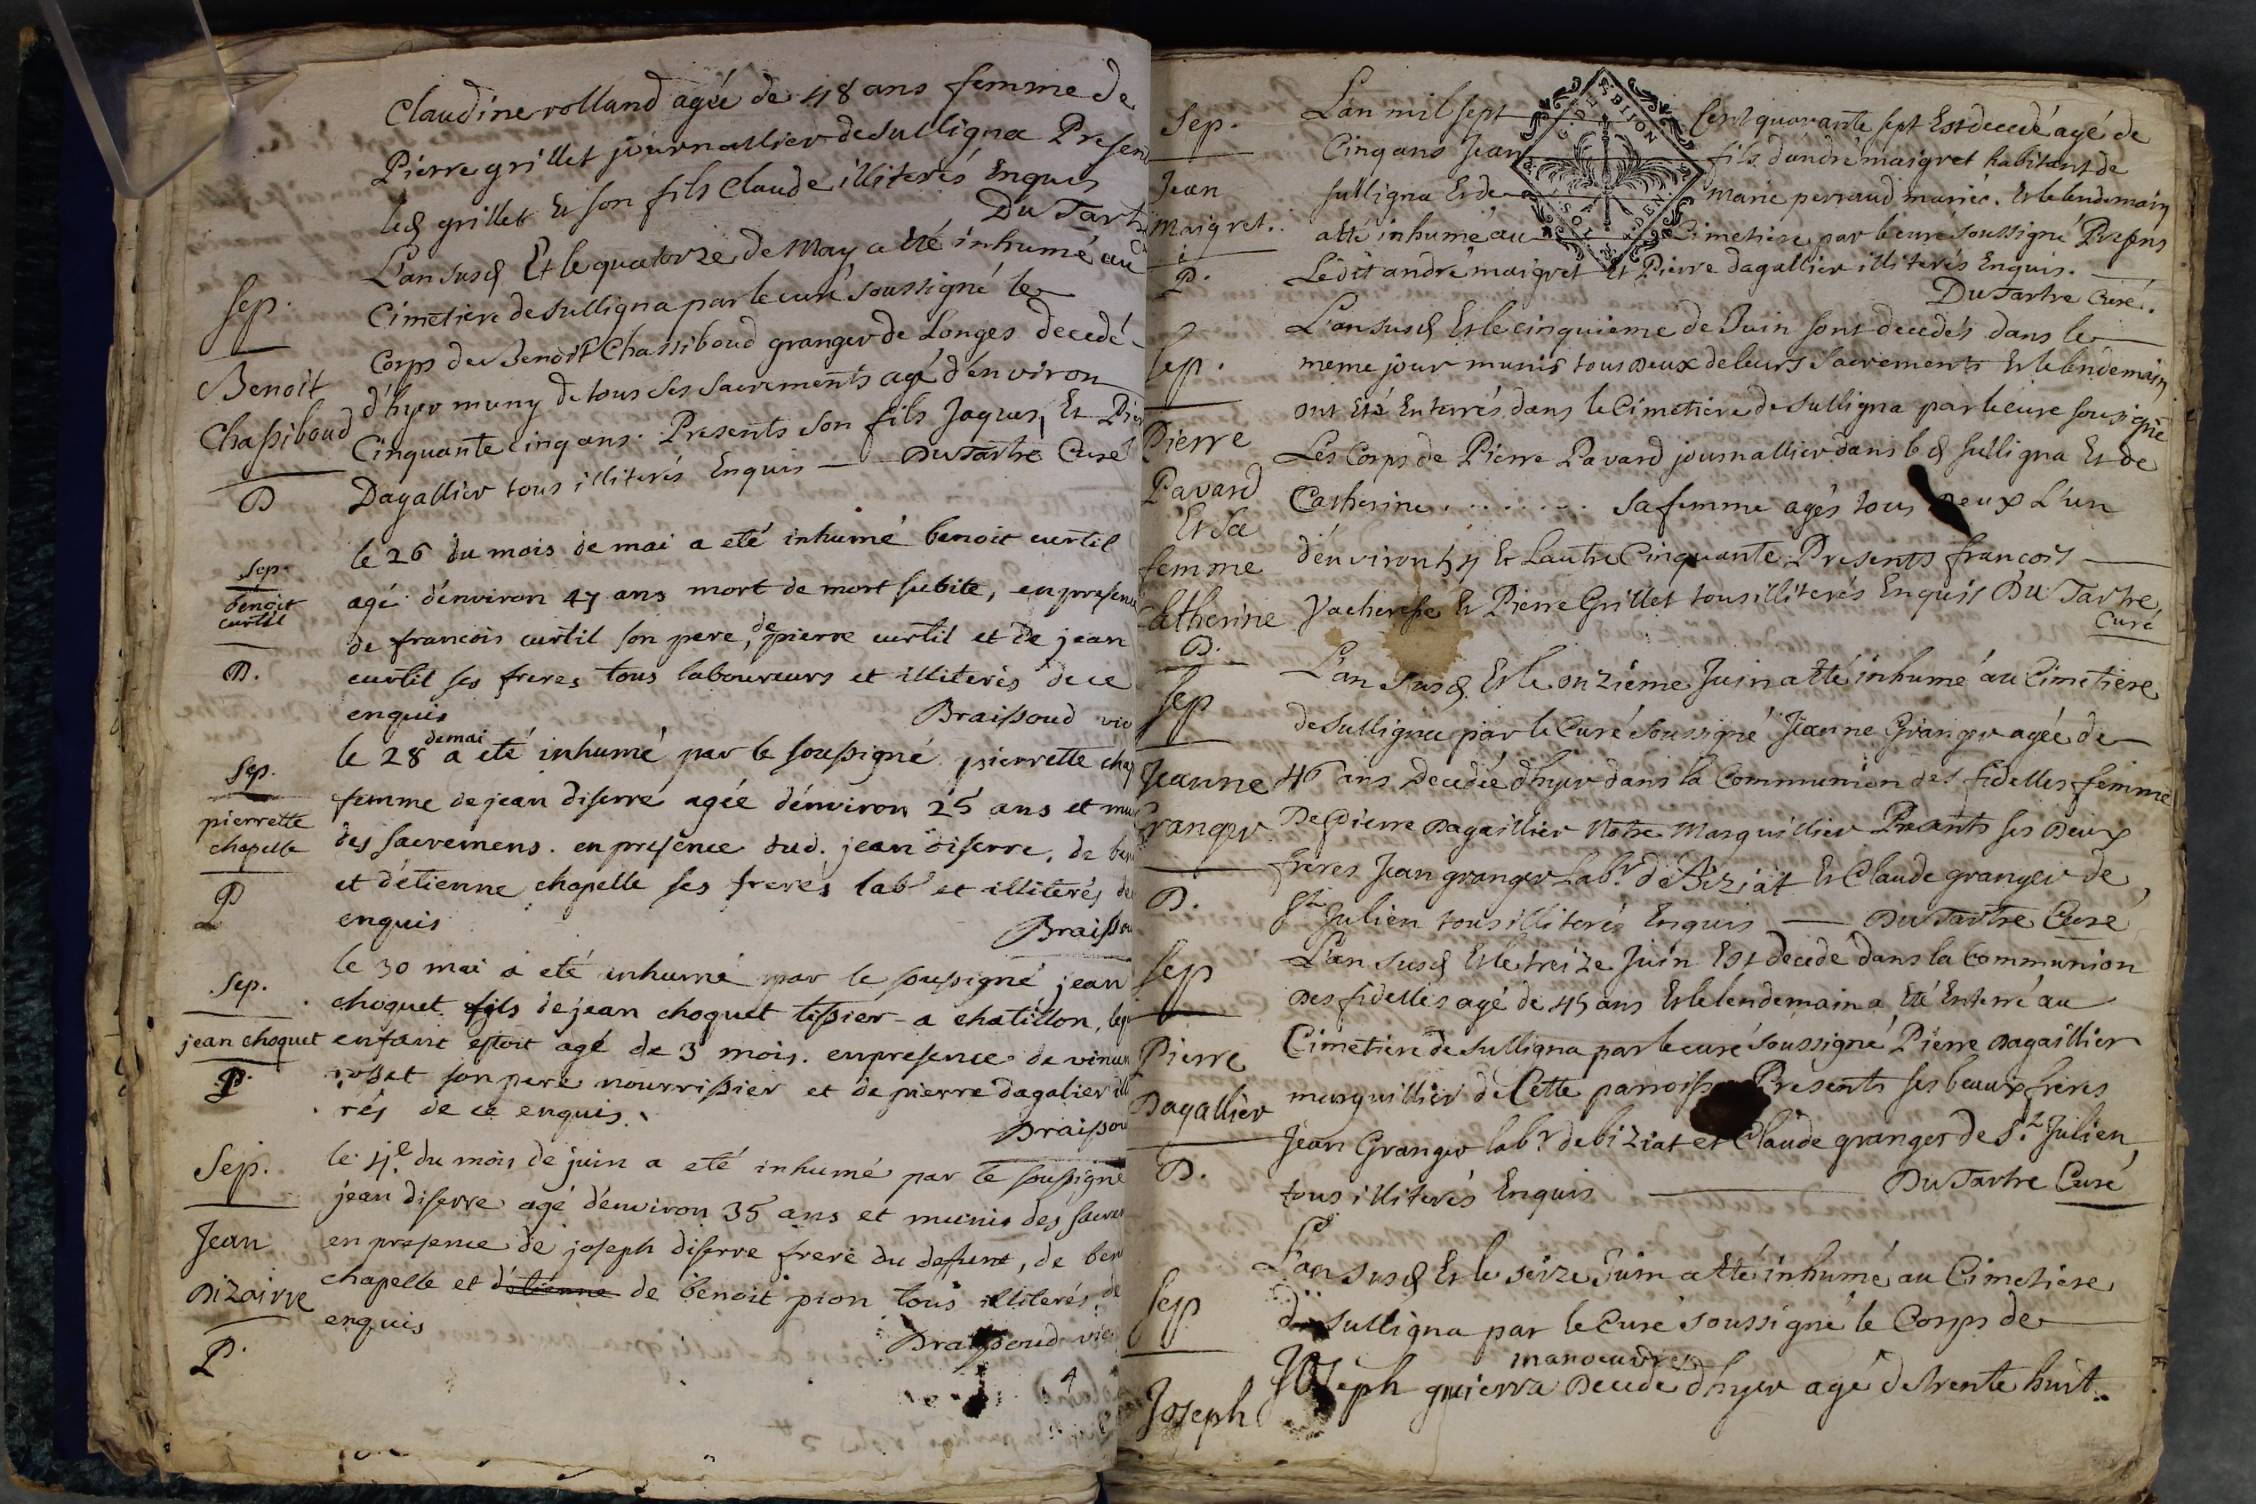 Claudine rolland agée de 48 ans femme de
Pierre grillet journallier de Sulligna Presen
led grillet Et son fils Claude illiterés Enquis
Du Tart
Sep.
Benoit
Chassiboud
L'an susd Et le quatorze de May a été inhumé au
Cimetiere de sulligna par le curé soussigné le
Corps de Benoit Chassiboud granger de Longes decedé
d'hyer muny de tous ses sacrements agé d'environ
Cinquante cinq ans. Presents son fils Jaques, Et Pier
Dagallier tous illiterés Enquis — Du Tartre Curé
Sep.
benoit
curtil
le 26 du mois de mai a eté inhumé benoit curtil
agé d'environ 47 ans mort de mort subite, en presen
de francois curtil son pere, de pierre curtil et de jean
curtil ses freres tous laboureurs et illiterés de ce
enquis Braissoud vic
Sep.
pierrette
chapelle
P
le 28 de mai a eté inhumé par le soussigné pierrette chap
femme de jean diserré agée d'environ 25 ans et mu
des sacremens. en presence dud. jean diserre, de ben
et d'étienne chapelle ses freres labr et illiterés de
enquis Braisso
Sep.
jean choquet
P.
le 30 mai a eté inhumé par le soussigné jean
choquet fils de jean choquet tissier a chatillon, leq
enfant estoit agé de 3 mois. en presence de vincen
son pere nourrissier et de pierre dagalier ill
rés de ce enquis.
Braissou
Sep.
Jean
Dizairre
P.
le 4.e du mois de juin a eté inhumé par le soussigné
jean diserre agé d'environ 35 ans et munis des sacre
en presence de joseph diserre frere du defunt, de ben
chapelle et d'étienne de benoit pion tous illiterés de
enquis
Braissoud vic
Sep.
Jean
maigret.
P.
L'an mil sept Cent quarante sept Est decedé agé de
Cinq ans Jean fils d'andré maigret habitant de
sulligna Et de marie perraud mariés. Et le lendemain
a été inhumé au Cimetiere par le curé soussigné Presens
Ledit andré maigret Et Pierre dagallier illiterés Enquis.
Du Tartre Curé.
Sep.
Pierre
Pavard
Et Sa
femme
Catherine
L'an susd Et le cinquieme de Juin sont decedés dans le
meme jour munis tous deux de leurs Sacrements Et le lendemain
ont Eté Enterrés dans le Cimetiere de Sulligna par le cure sousigné
Les Corps de Pierre Pavard journallier dans led sulligna Et de
Catherine . . . . . . . . sa femme agés tous deux L'un
d'environ 54 Et Lautre Cinquante Presents francois
Vacheresse Et Pierre Grillet tous illiterés Enquis Du Tartre
Curé
Sep
Jeanne
Granger
D.
L'an susd Et le onzième Juin a été inhumé au Cimetiere
de Sulligna par le Curé Soussigné Jeanne Granger agée de
46 ans Decedée d'hyer dans la Communion des fidelles femme
De Pierre Dagaillier Notre Marguillier Presents ses Deux
freres Jean granger Labr. de Biziat Et Claude granger de
St Julien tous illiterés Enquis — Du Tartre Curé
Sep
Pierre
Dagallier
D.
L'an susd Et le treize Juin Est decedé dans la Communion
Des fidelles agé de 45 ans Et le lendemain a Eté Enterré au
Cimetiere de sulligna par le curé soussigné Pierre Dagaillier
marguillier de Cette parroisse Presents ses beaux freres
Jean Granger labr. de biziat et Claude granger de St. Julien,
tous illiterés Enquis — Du Tartre Curé
Sep
Joseph
L'an susd Et le seize Juin a été inhumé au Cimetiere
de sulligna par le Curé soussigné le Corps de
manoeuvre
Joseph guierra Decedé d'hyer agé de trente huit